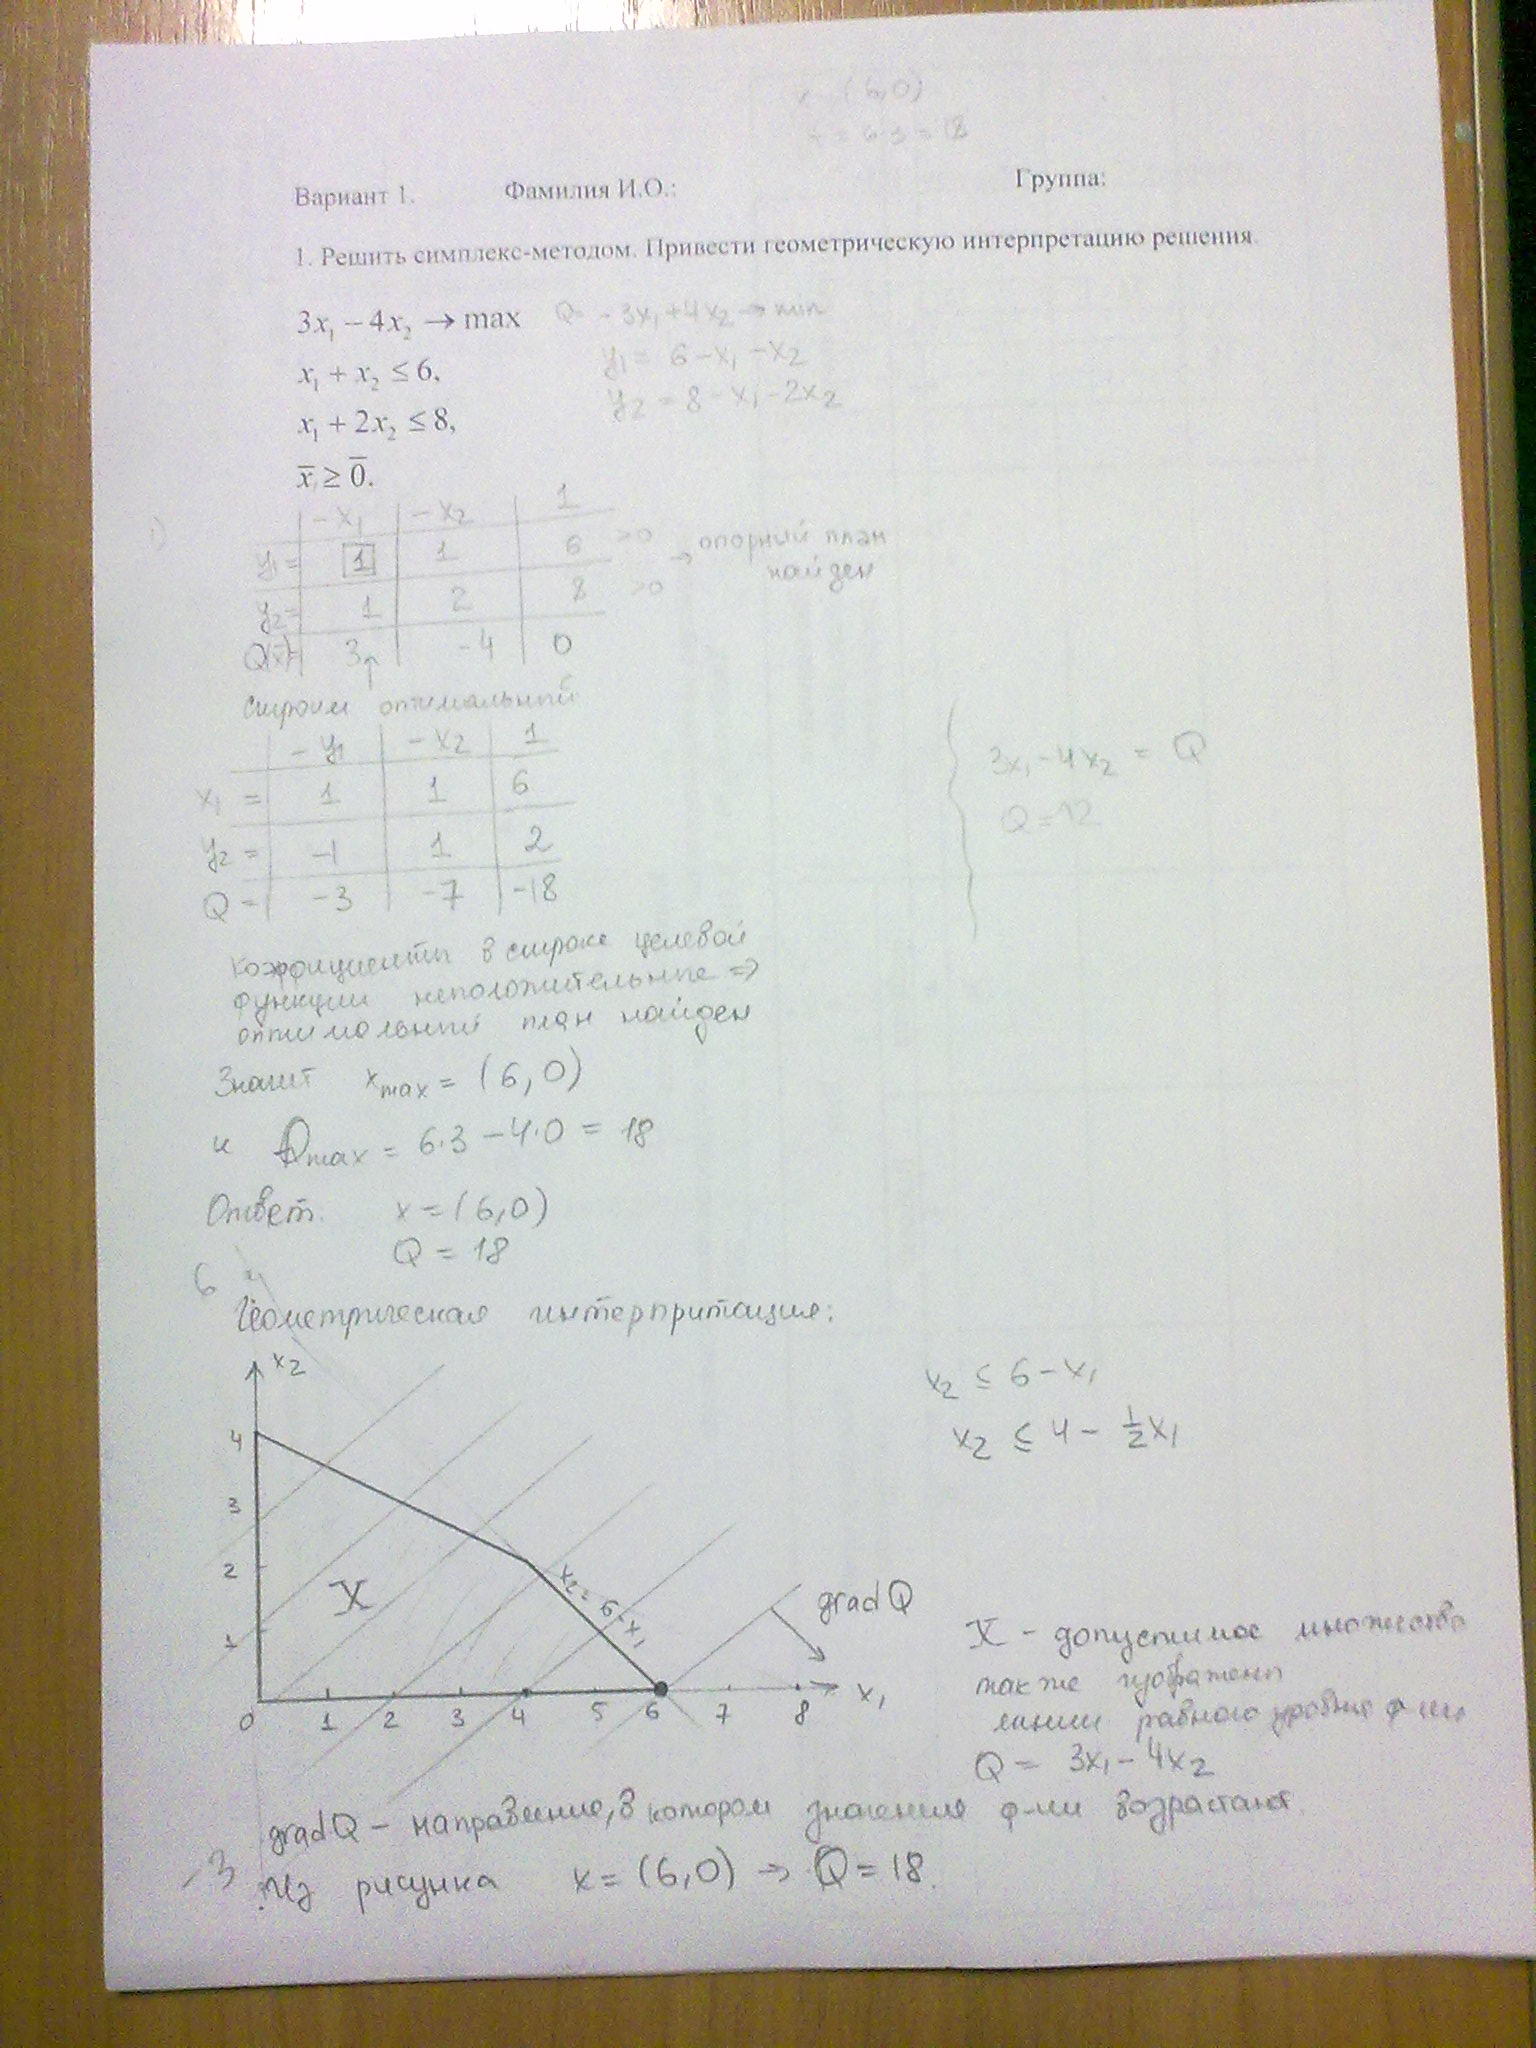 x (6,0)
f = 6·3 = 18
Вариант 1. Фамилия И.О.: Группа:
1. Решить симплекс-методом. Привести геометрическую интерпретацию решения.
3x₁ − 4x₂ → max Q= -3x₁+4x₂ → min
x₁ + x₂ ≤ 6, y₁ = 6-x₁-x₂
x₁ + 2x₂ ≤ 8, y₂ = 8-x₁-2x₂
x̄ ≥ 0̄.
1)
-x₁ -x₂ 1
y₁= 1 1 6 >0 → опорный план
найден
y₂= 1 2 8 >0
Q(x̄)= 3 ↑ -4 0
строим оптимальный
-y₁ -x₂ 1
x₁ = 1 1 6
y₂ = -1 1 2
Q = -3 -7 -18
3x₁-4x₂ = Q
Q=12
Коэффициенты в строке целевой
функции неположительные ⇒
оптимальный план найден
Значит xmax = (6,0)
и Qmax = 6·3 - 4·0 = 18
Ответ. x = (6,0)
Q = 18
6
Геометрическая интерпритация:
x₂ ≤ 6-x₁
x₂ ≤ 4 - ½x₁
x₂
4
3
2
1
X
x₂ = 6-x₁
grad Q
0 1 2 3 4 5 6 7 8 x₁
X - допустимое множество
также изображены
линии равного уровня ф-ии
Q = 3x₁-4x₂
grad Q - направление, в котором значения ф-ии возрастают.
-3
Из рисунка x = (6,0) → Q = 18.